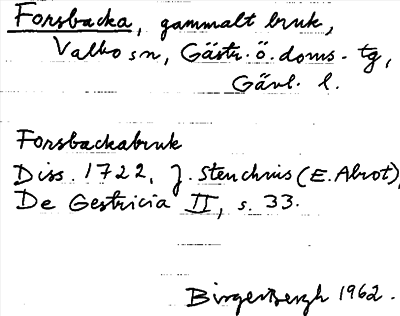 Forsbacka, gammalt bruk,
Valbo sn, Gästr. ö. doms. tg,
Gävl. l.
Forsbackabruk
Diss. 1722, J. Stenchrus (E. Alrot),
De Gestricia II, s. 33.
Birger Bergh 1962.